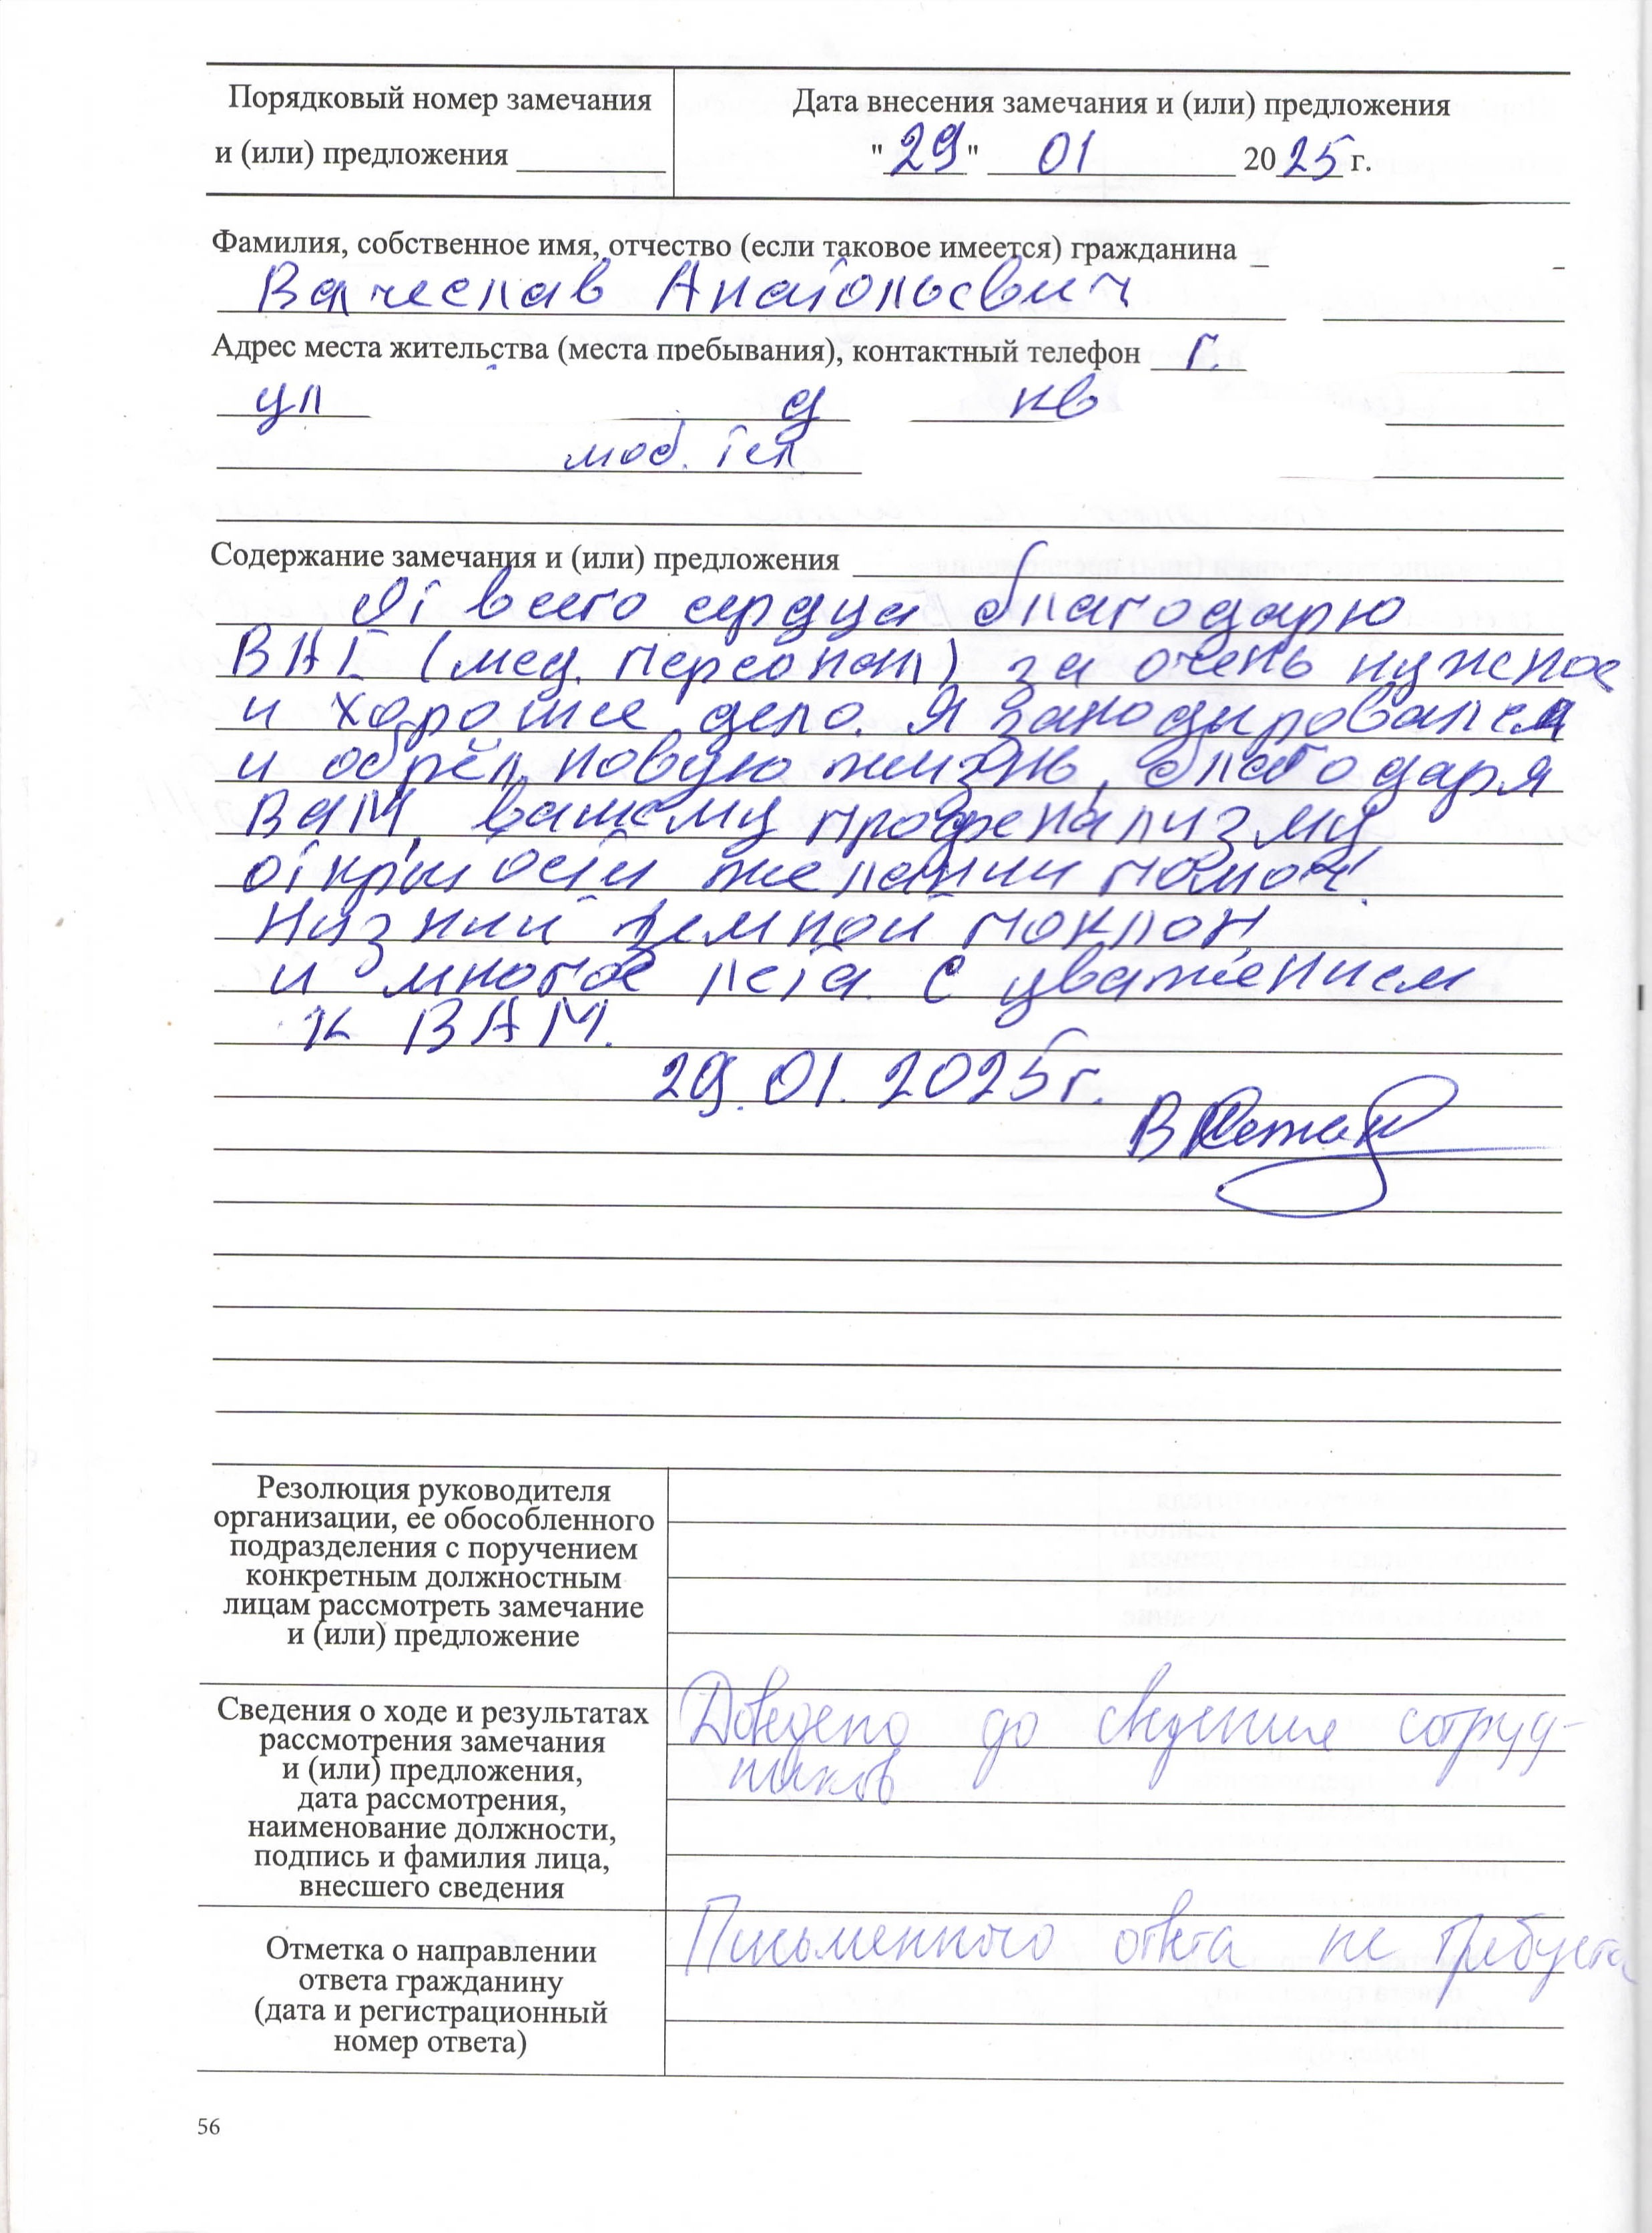 Порядковый номер замечания
и (или) предложения
Дата внесения замечания и (или) предложения
"29" 01 2025 г.
Фамилия, собственное имя, отчество (если таковое имеется) гражданина
Вячеслав Анатольевич
Адрес места жительства (места пребывания), контактный телефон г.
ул д кв
моб. тел
Содержание замечания и (или) предложения
От всего сердца благодарю
ВАС (мед. персонал) за очень нужное
и хорошее дело. Я закодировался
и обрёл новую жизнь, благодаря
ВАМ, вашему профенализму
открытости желании помоч
Низкий земной поклон
и многое лета. С уважением
к ВАМ.
29.01.2025г.
Резолюция руководителя
организации, ее обособленного
подразделения с поручением
конкретным должностным
лицам рассмотреть замечание
и (или) предложение
Сведения о ходе и результатах
рассмотрения замечания
и (или) предложения,
дата рассмотрения,
наименование должности,
подпись и фамилия лица,
внесшего сведения
Доведено до сведения сотруд-
ников
Отметка о направлении
ответа гражданину
(дата и регистрационный
номер ответа)
Письменного ответа не требуется
56